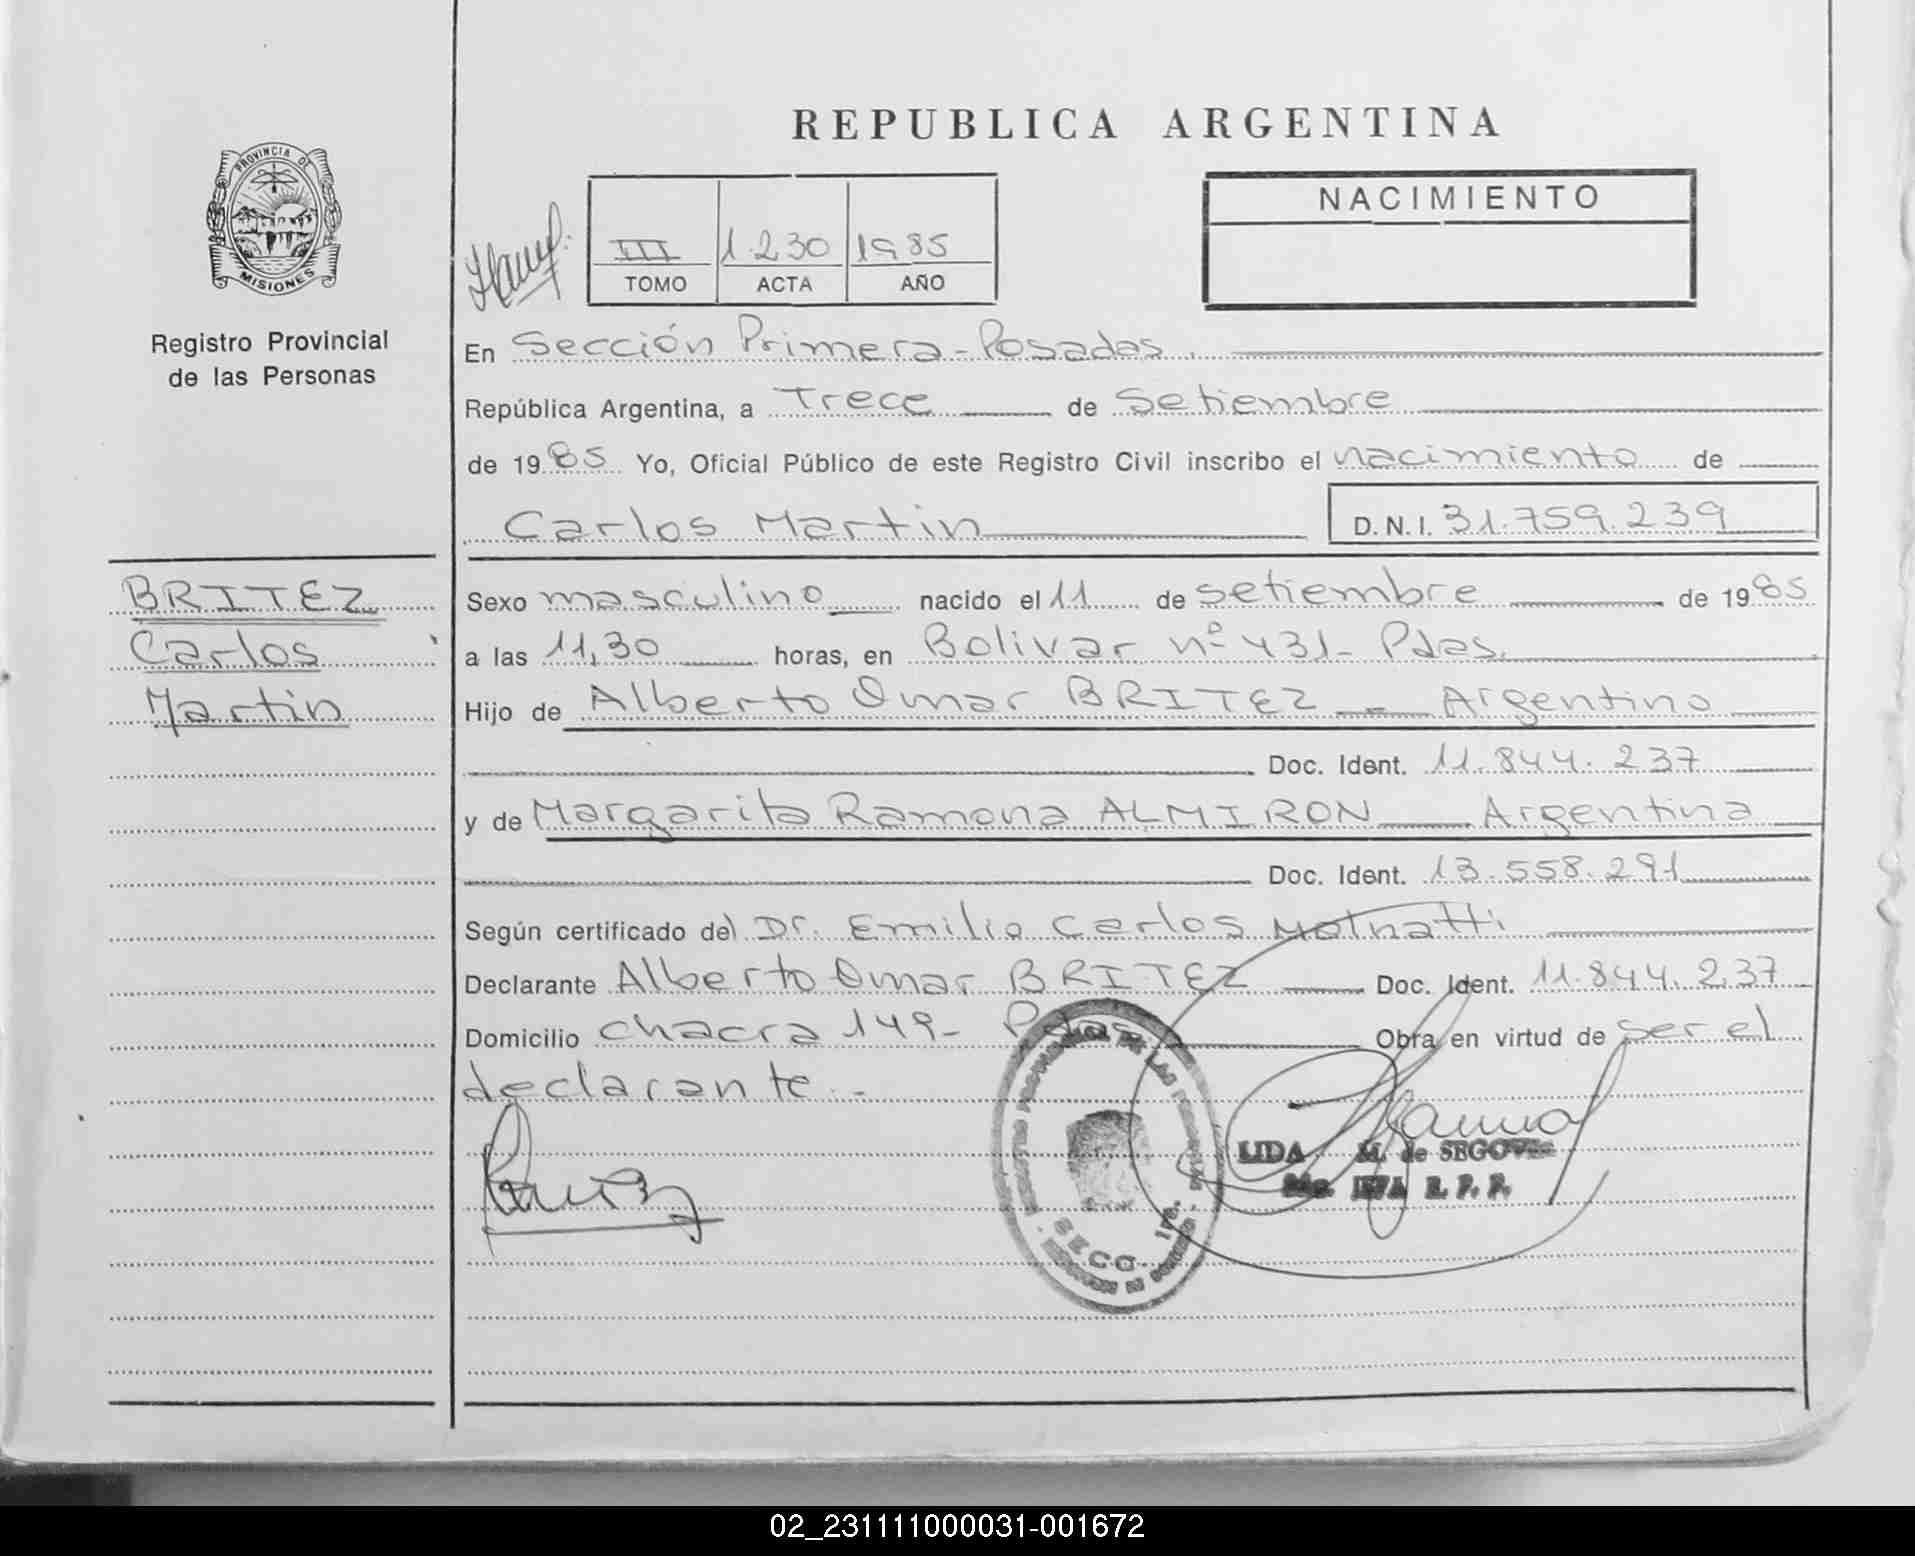 REPUBLICA ARGENTINA
PROVINCIA DE
MISIONES
Registro Provincial
de las Personas
NACIMIENTO
III 1.230 1985
TOMO ACTA AÑO
En Sección Primera - Posadas.
República Argentina, a Trece de Setiembre
de 1985 Yo, Oficial Público de este Registro Civil inscribo el nacimiento de
Carlos Martin D.N.I. 31.759.239
BRITEZ
Carlos
Martin
Sexo masculino nacido el 11 de setiembre de 1985
a las 11,30 horas, en Bolivar nº 431- Pdas.
Hijo de Alberto Omar BRITEZ - Argentino
Doc. Ident. 11.844.237
y de Margarita Ramona ALMIRON Argentina
Doc. Ident. 13.558.291
Según certificado del Dr. Emilio Carlos
Declarante Alberto Omar BRITEZ Doc. Ident. 11.844.237
Domicilio chacra 149- Pdas Obra en virtud de ser el
declarante.-
LIDA M. de SEGOVIA
R. P. P.
SECC. 1ra.
02_231111000031-001672